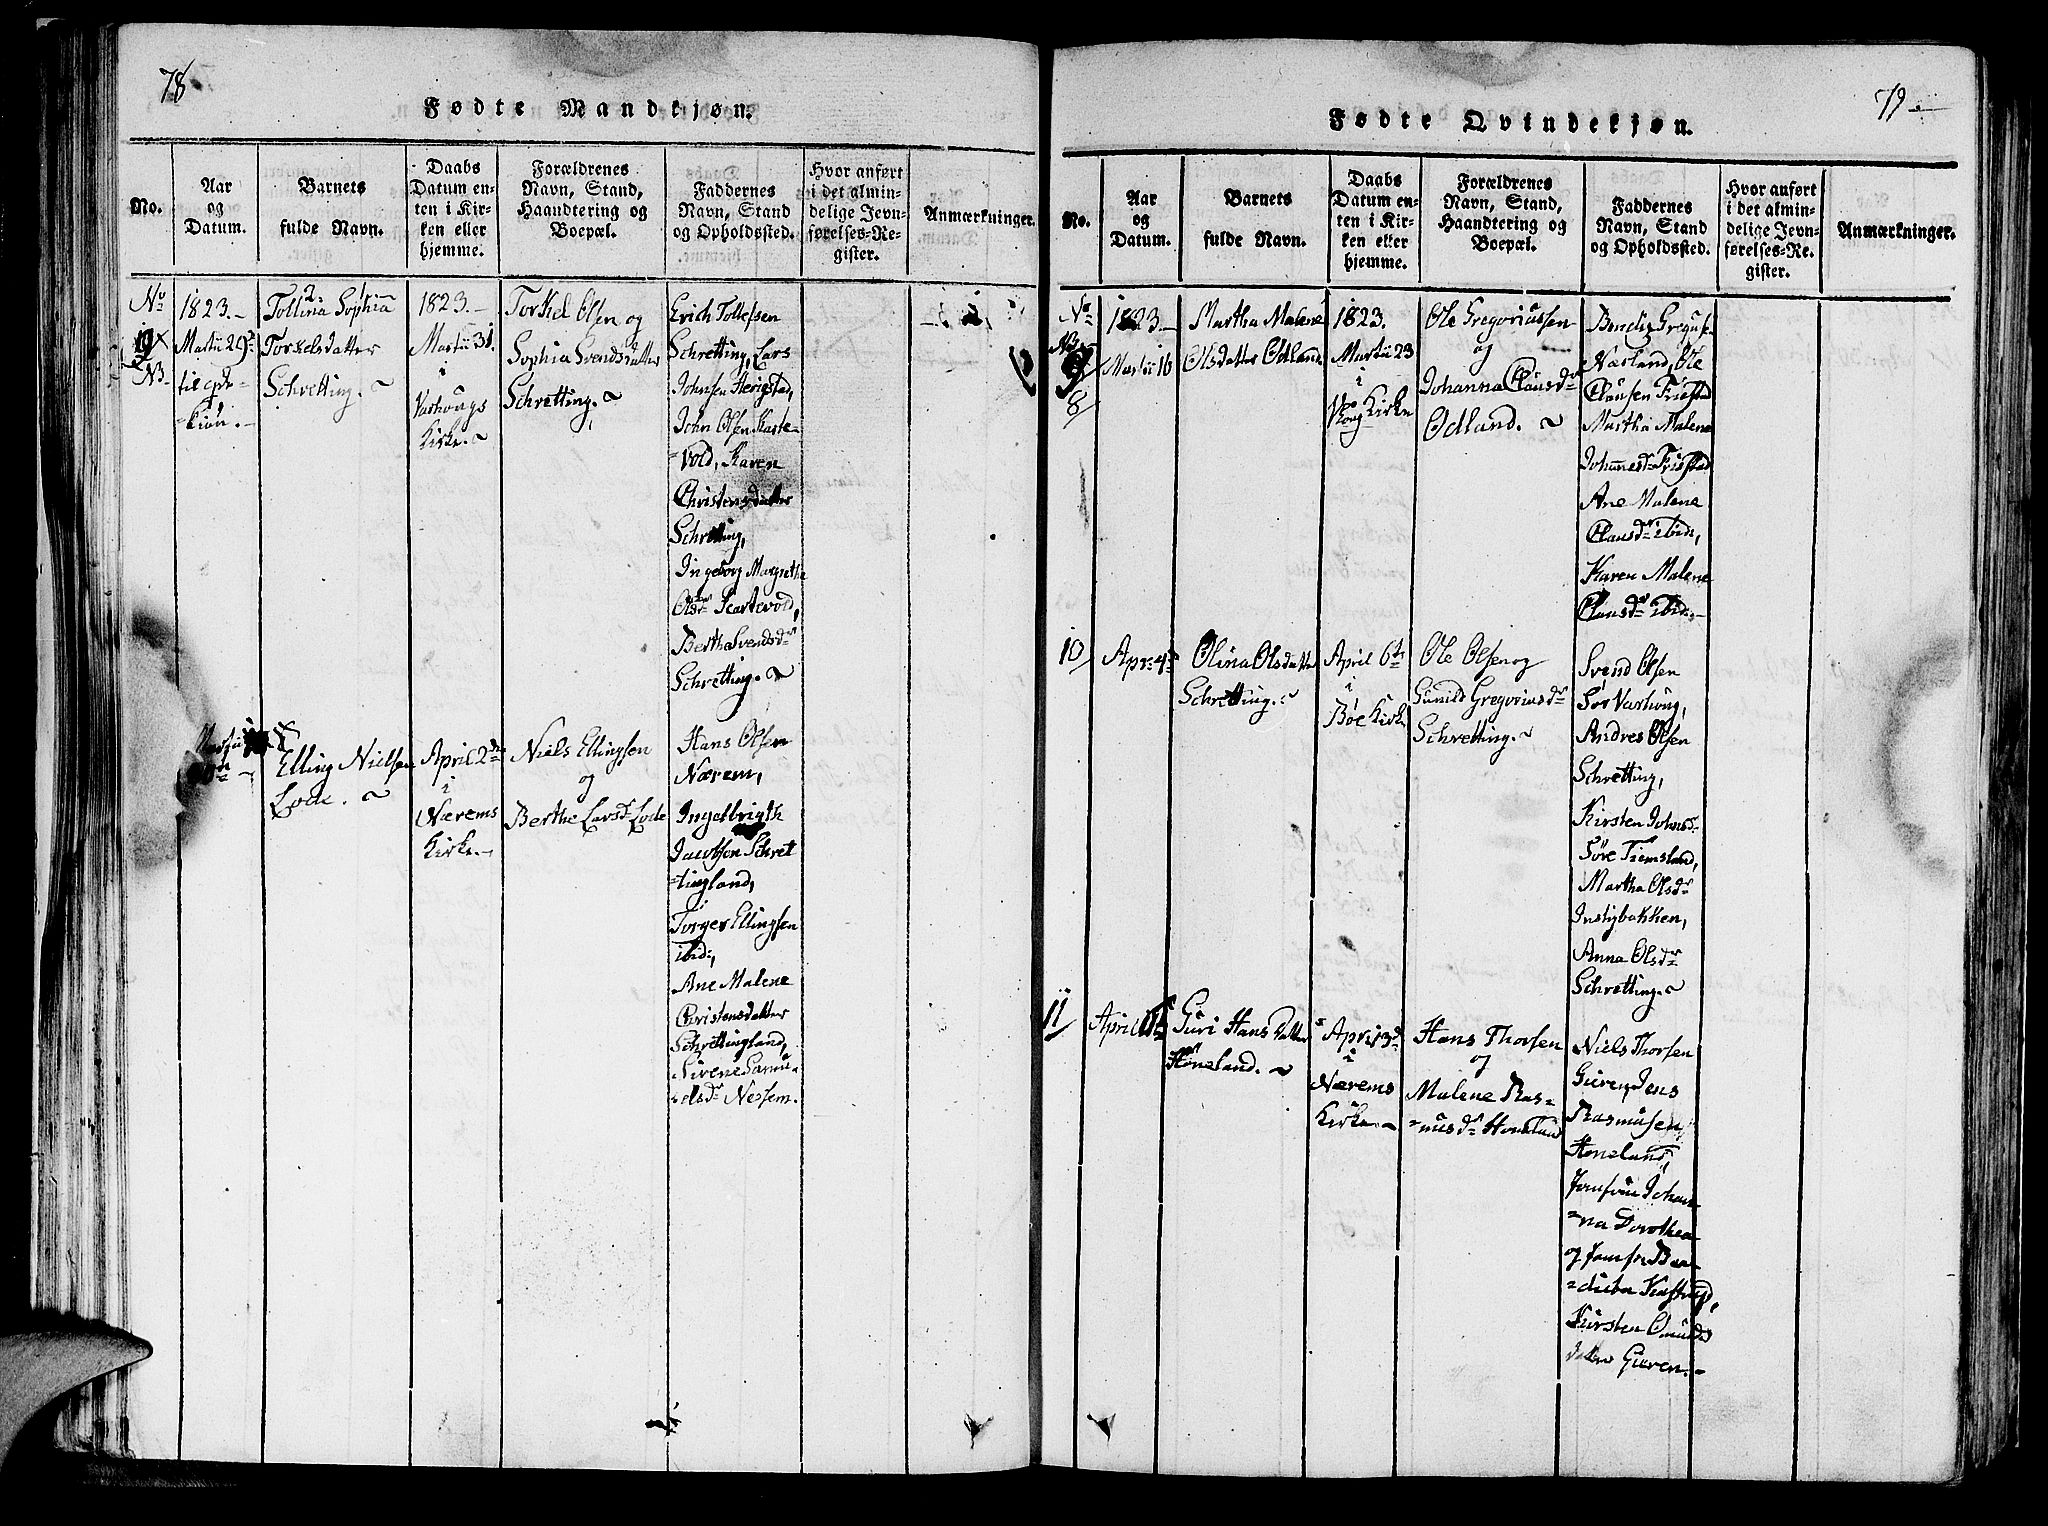 78
Fødte Mandkjøn.
No.
Aar
og
Datum.
Barnets
fulde Navn.
Daabs
Datum en-
ten i Kir-
ken eller
hjemme.
Forældrenes
Navn, Stand,
Haandtering og
Boepæl.
Faddernes
Navn, Stand
og Opholdssted.
Hvor anført
i det almin-
delige Jevn-
førelses-Re-
gister.
Anmærkninger.
No
19
NB
1823.
Martii 29de
til qde-
kiön.
Tollina Sophia
Torkelsdatter
Schretting.
1823.
Martii 31
i
Varhougs
Kirke.
Torkel Olsen og
Sophia Svendsdatter
Schretting.
Erich Tollefsen
Schretting, Lars
Johnsen Herigstad,
John Olsen Karte-
vold, Karen
Christensdatter
Schretting,
Ingeborg Margrethe
Olsdr Kartevold,
Bertha Svendsdr
Schretting.
Martii
Elling Nielsen
Lode.
April 2den
i
Nærems
Kirke.
Niels Ellingsen
og
Berthe Larsdr Lode
Hans Olsen
Nærem,
Ingelbrigth
Jacobson Schret
tingland,
Torger Ellingsen
ibid:,
Ane Malene
Christensdatter
Schrettingland,
Sirene Samu-
elsdr Nessem.
79
Fødte Qvindekjøn.
No.
Aar
og
Datum.
Barnets
fulde Navn.
Daabs
Datum en-
ten i Kir-
ken eller
hjemme.
Forældrenes
Navn, Stand,
Haandtering og
Boepæl.
Faddernes
Navn, Stand
og Opholdssted.
Hvor anført
i det almin-
delige Jevn-
førelses-Re-
gister.
Anmærkninger.
No
NB
9
8
1823.
Martii 16
Martha Malene
Olsdatter Odland
1823.
Martii 23
i
Kirke
Ole Gregoriussen
og
Johanna Clausdr
Odland.
Bendix Greguss.
Nærland, Ole
Clausen Friestad
Martha Malene
Johannesdr Friestad
Ane Malene
Clausdr ibid:,
Karen Malene
Clausdr ibid:
10
Apr: 4de
Olina Olsdatter
Schretting.
April 6te
i
Böe Kirke
Ole Olsen og
Gunild Gregoriusdr
Schretting.
Svend Olsen
Sör Varhoug,
Andres Olsen
Schretting,
Kirsten Johnsdr
Söre Tiemsland,
Martha Olsdr
Instybakken,
Anna Olsdr
Schretting.
11
April
Guri Hansdatter
Höneland.
April 13de
i
Nærems
Kirke.
Hans Thorsen
og
Malene Ras-
musdr Honeland
Niels Thorsen
Gieren, Jens
Rasmusen
Höneland,
Jomfrue Johan-
na Dorothea
og Jomfr: Ben-
dicta Kastrup,
Kirsten Omunds
datter Gieren.